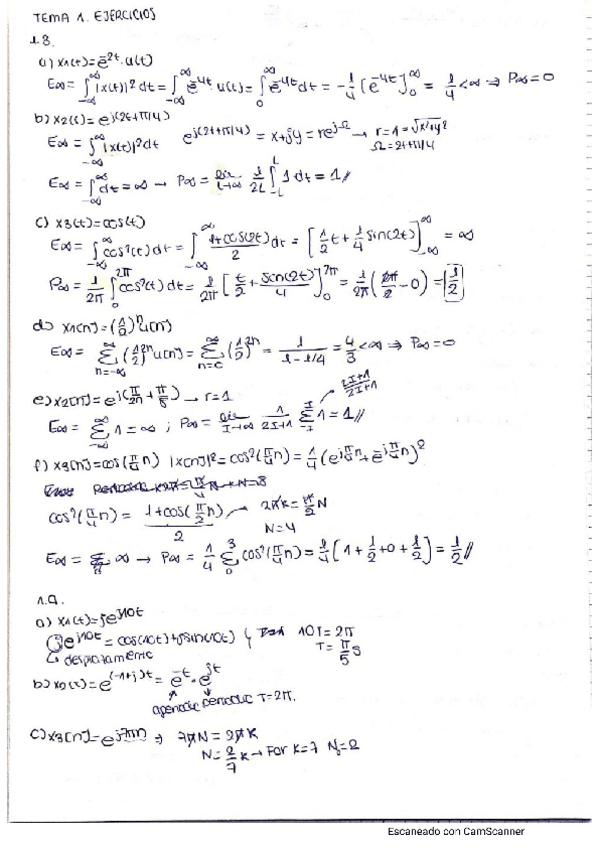 TEMA 1. EJERCICIOS
1.3.
a) x1(t)=e^-2t·u(t)
E∞= ∫_-∞^∞ |x(t)|²dt = ∫_-∞^∞ e^-4t·u(t) = ∫_0^∞ e^-4t dt = -1/4 [e^-4t]_0^∞ = 1/4 <∞ ⇒ P∞=0
b) x2(t)= e^j(2t+π/4)
E∞ = ∫_-∞^∞ |x(t)|²dt e^j(2t+π/4) = x+jy = re^jΩ → r=1=√x²+y²
Ω=2t+π/4
E∞= ∫_-∞^∞ dt = ∞ → P∞= lim L→∞ 1/2L ∫_-L^L 1 dt = 1//
c) x3(t)=cos(t)
E∞= ∫_-∞^∞ cos²(t)dt = ∫_-∞^∞ 1+cos(2t)/2 dt = [1/2 t + 1/4 sin(2t)]_-∞^∞ = ∞
P∞= 1/2π ∫_0^2π cos²(t)dt = 1/2π [t/2 + sin(2t)/4]_0^2π = 1/2π (2π/2 -0) = 1/2
d) x1[n]=(1/2)^n u[n]
E∞= Σ_n=-∞^∞ (1/2)^2n u[n] = Σ_n=0^∞ (1/2)^2n = 1/1-1/4 = 4/3 <∞ ⇒ P∞=0
e) x2[n]=e^j(π/2n + π/8) → r=1
2I+1/2I+1
E∞= Σ_-∞^∞ 1=∞ ; P∞= lim I→∞ 1/2I+1 Σ_-I^I 1 = 1//
f) x3[n]=cos(π/4 n) |x[n]|²=cos²(π/4 n) = 1/4 (e^jπ/4n + e^-jπ/4n)²
cos²(π/4 n) = 1+cos(π/2 n)/2 → 2πk=π/2 N
N=4
E∞= ∞ → P∞= 1/4 Σ_0^3 cos²(π/4 n) = 1/4 [1+1/2+0+1/2] = 1/2//
1.9.
a) x1(t)=je^j10t
je^j10t = cos(10t)+jsin(10t) 10T=2π
T=π/5 s
b) x2(t)=e^(-1+j)t = e^-t·e^jt
aperiodic periodic T=2π.
c) x3[n]=e^j7πn ⇒ 7πN=2πK
N=2/7 k → For k=7 N0=2
Escaneado con CamScanner